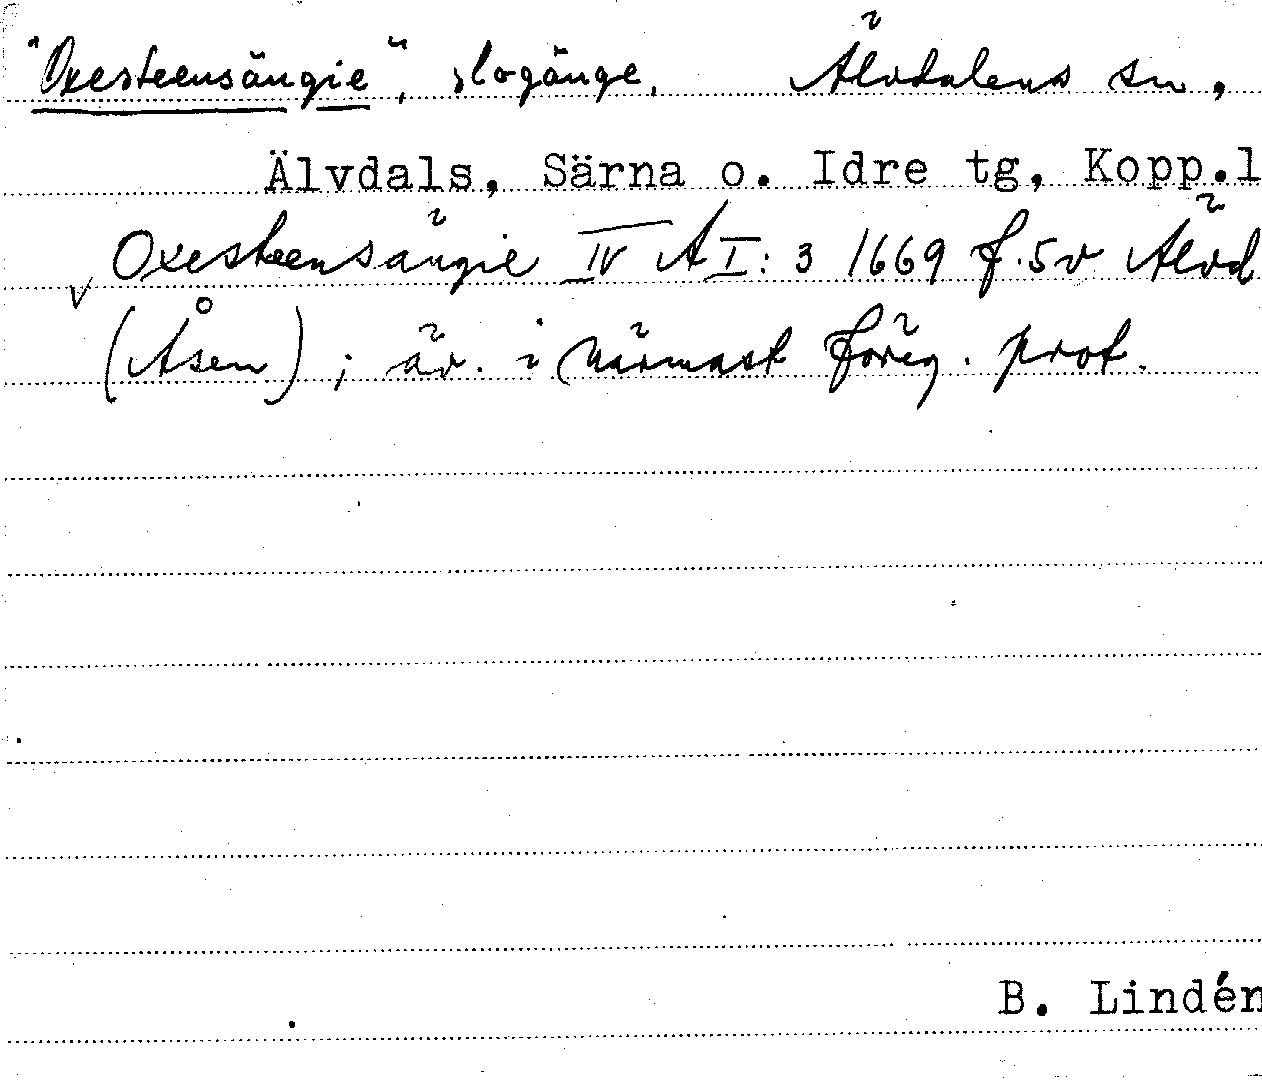 "Oxesteensängie", slogänge, Älvdalens sn,
Älvdals, Särna o. Idre tg, Kopp.l
Oxesteensängie IV A I: 3 1669 f. 5v Älvd
(Åsen); äv. i närmast föreg. prot.
B. Lindén